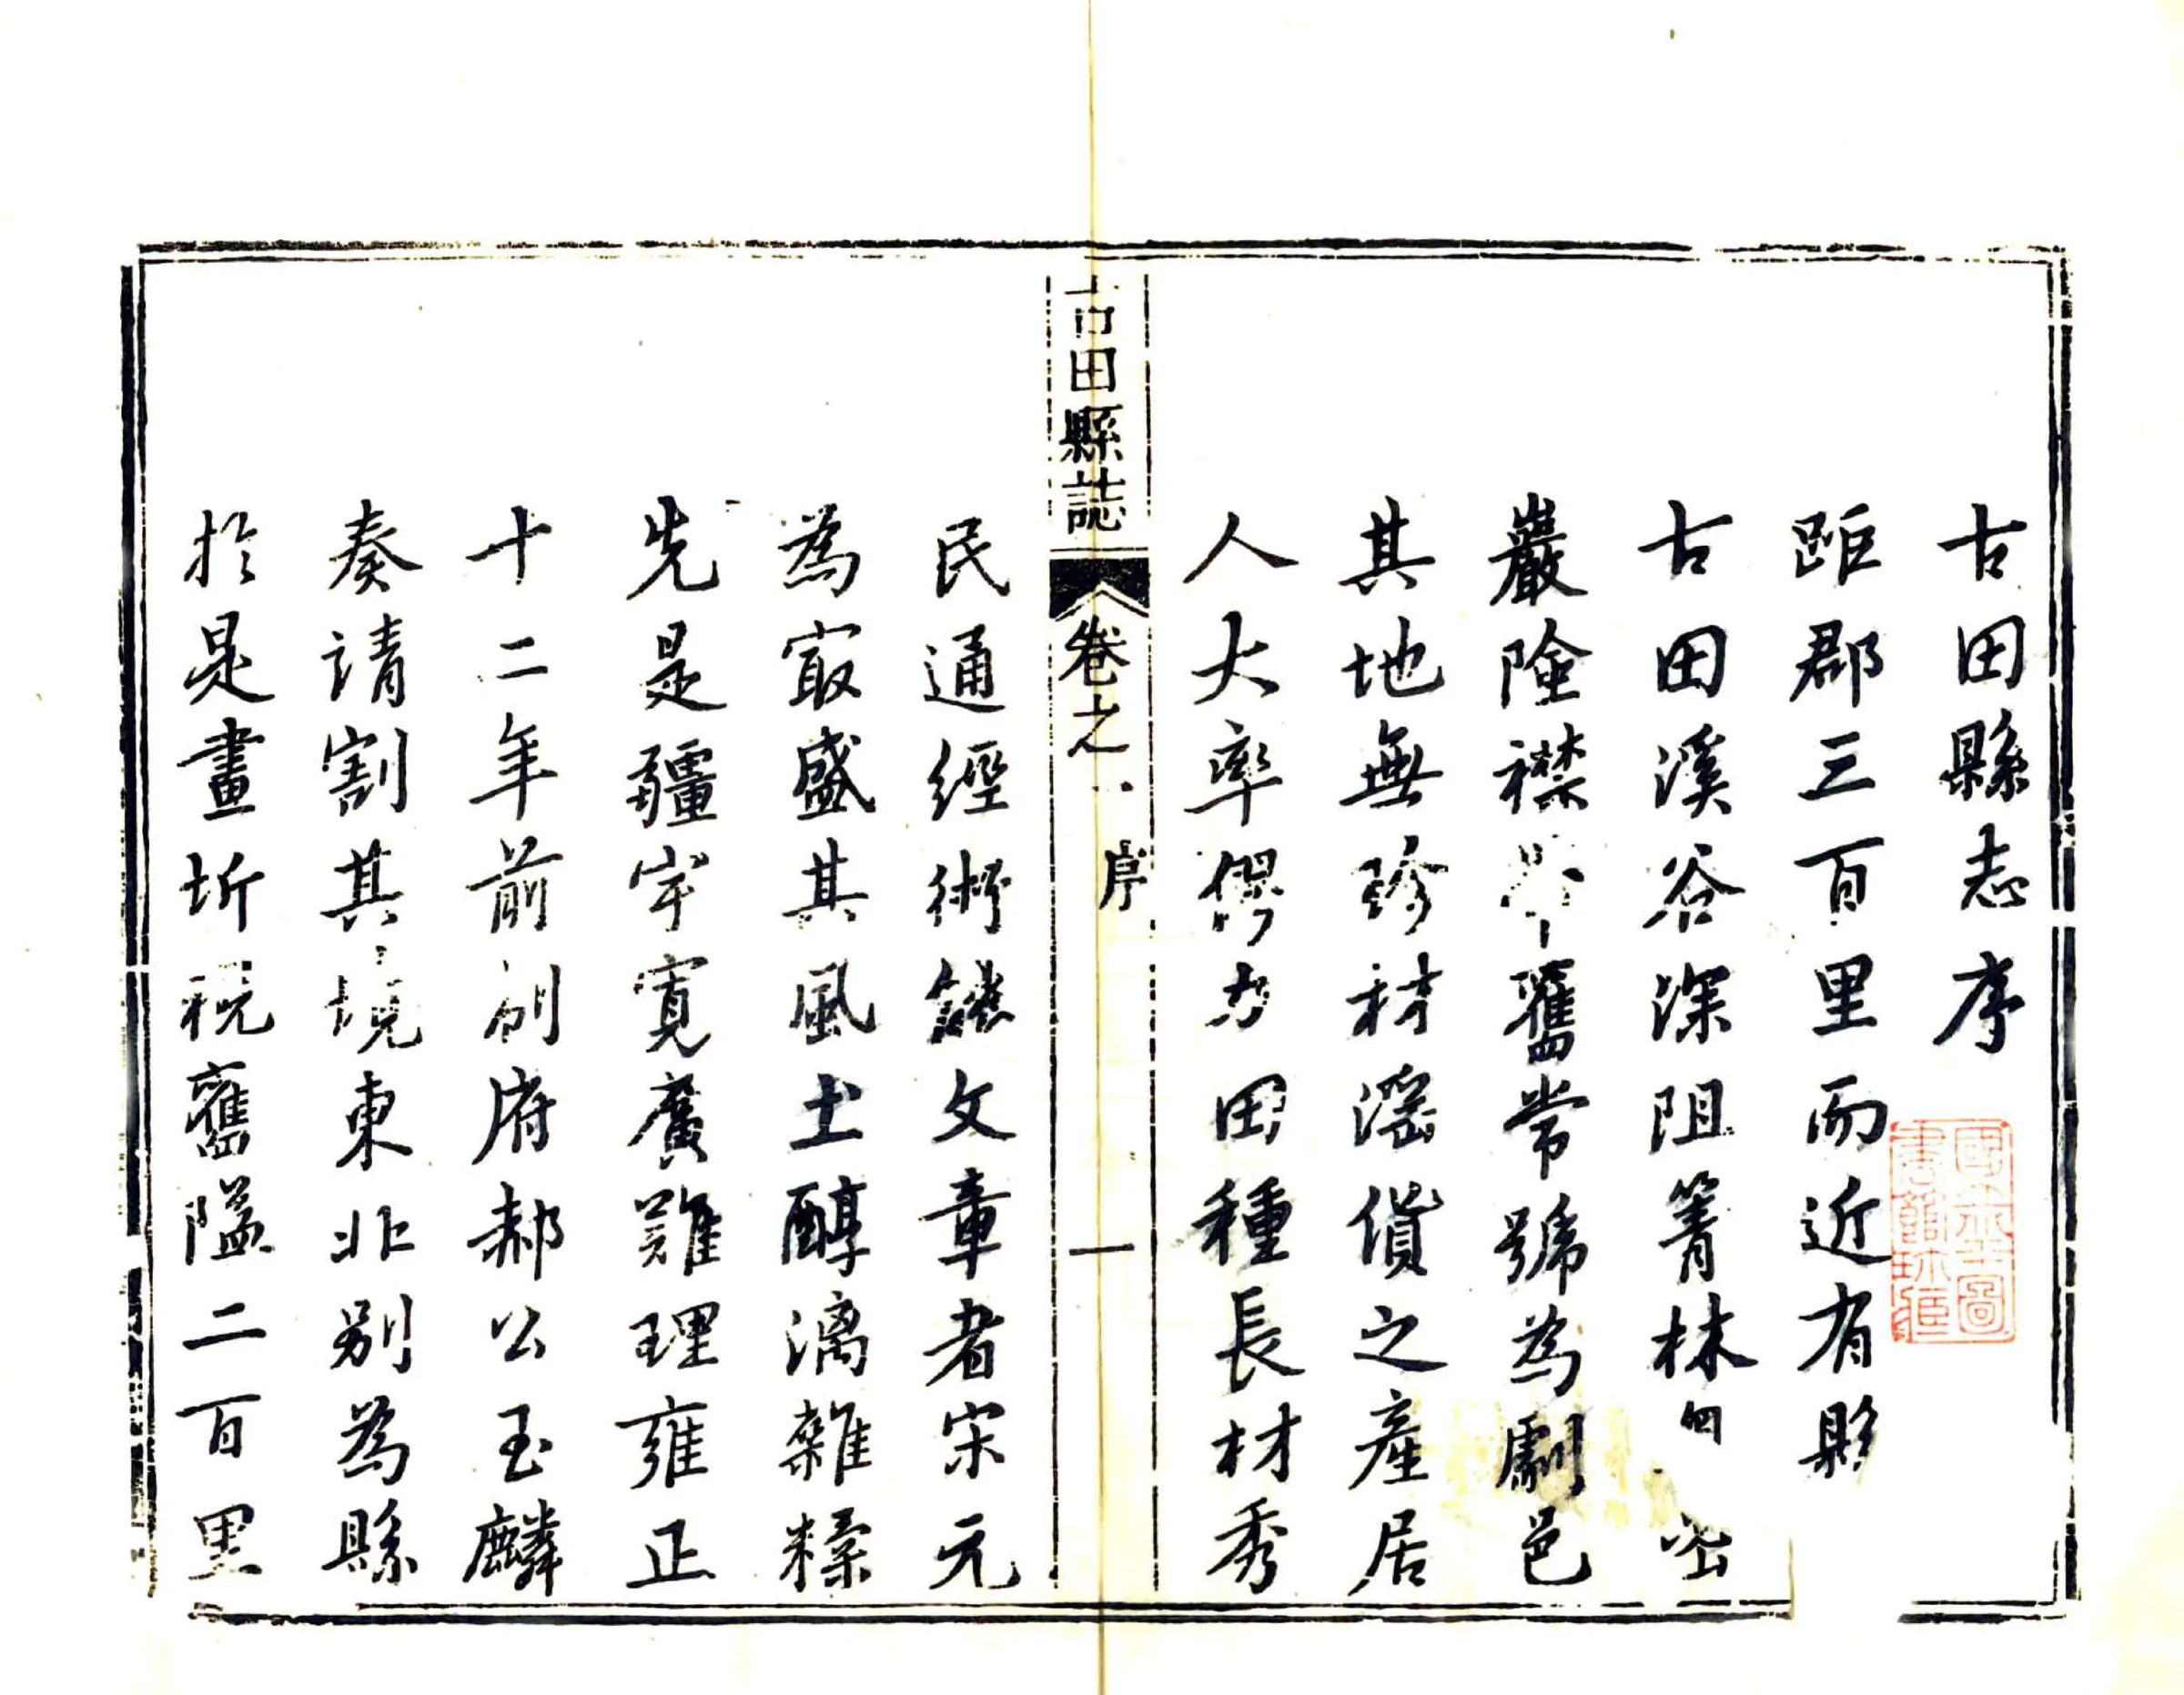 古田縣志序
距郡三百里而近有縣
古田溪谷深阻箐林四密
巖險襟帶舊常號為劇邑
其地無珍材滛貨之產居
人大率僇力田種長材秀
古田縣誌 卷之一 序 一
民通經術能文章者宋元
為寂盛其風土醇漓雜糅
先是疆宇寬廣難理雍正
十二年前制府郝公玉麟
奏請割其境東北别為縣
於是畫圻稅舊隘二百里
國立北平圖
書館珍藏